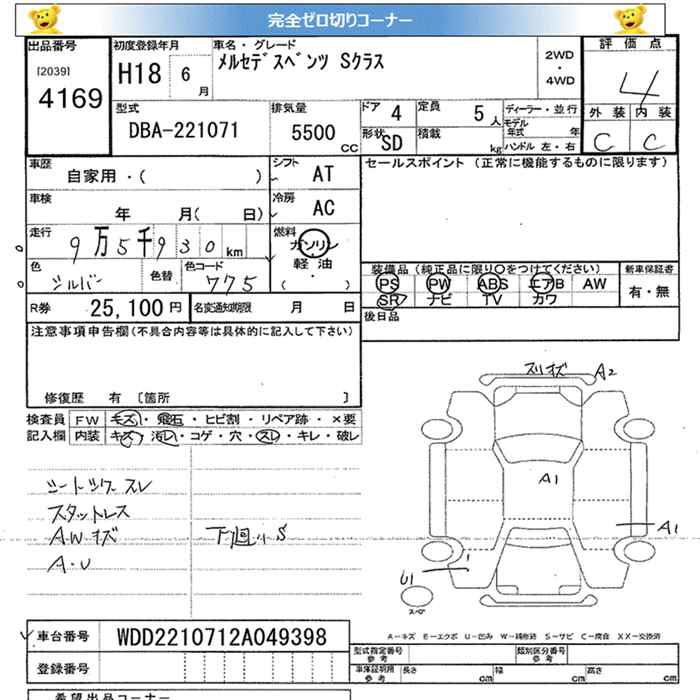 完全ゼロ切りコーナー
出品番号
[2039]
4169
初度登録年月
H18 6月
車名・グレード
メルセデスベンツ Sクラス
2WD
・
4WD
評価点
4
外装 内装
C C
型式
DBA-221071
排気量
5500 CC
ドア 4
形状 SD
定員 5人
積載 kg
ディーラー・並行
モデル年式 年
ハンドル 左・右
車歴
自家用・( )
シフト AT
車検
年 月( 日)
冷房 AC
走行
9万5千930km
燃料
ガソリン
軽油
・
( )
色
シルバー
色替
色コード
775
R券 25,100円
名変通知期限 月 日
セールスポイント(正常に機能するものに限ります)
装備品(純正品に限り○をつけてください)
PS PW ABS エアB AW
SR ナビ TV カワ
新車保証書
有・無
後日品
注意事項申告欄(不具合内容等は具体的に記入して下さい)
修復歴 有 [箇所 ]
検査員記入欄
FW キズ・飛石・ヒビ割・リペア跡・×要
内装 キズ・汚レ・コゲ・穴・スレ・キレ・破レ
シートシワ スレ
スタットレス
A.W キズ 下回り S
A・U
スリキズ A2
A1
A1
U1
スペア
A-キズ E-エクボ U-凹み W-補修跡 S-サビ C-腐食 XX-交換済
車台番号 WDD2210712A049398
登録番号
型式指定番号
参考
類別区分番号
参考
車庫証明用
参考
長さ cm 幅 cm 高さ cm
希望出品コーナー